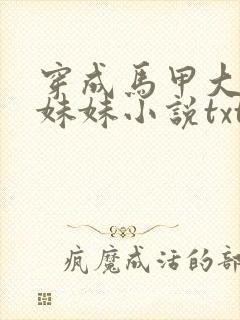 穿成馬甲大
妹妹小說txt
疯魔成活的部